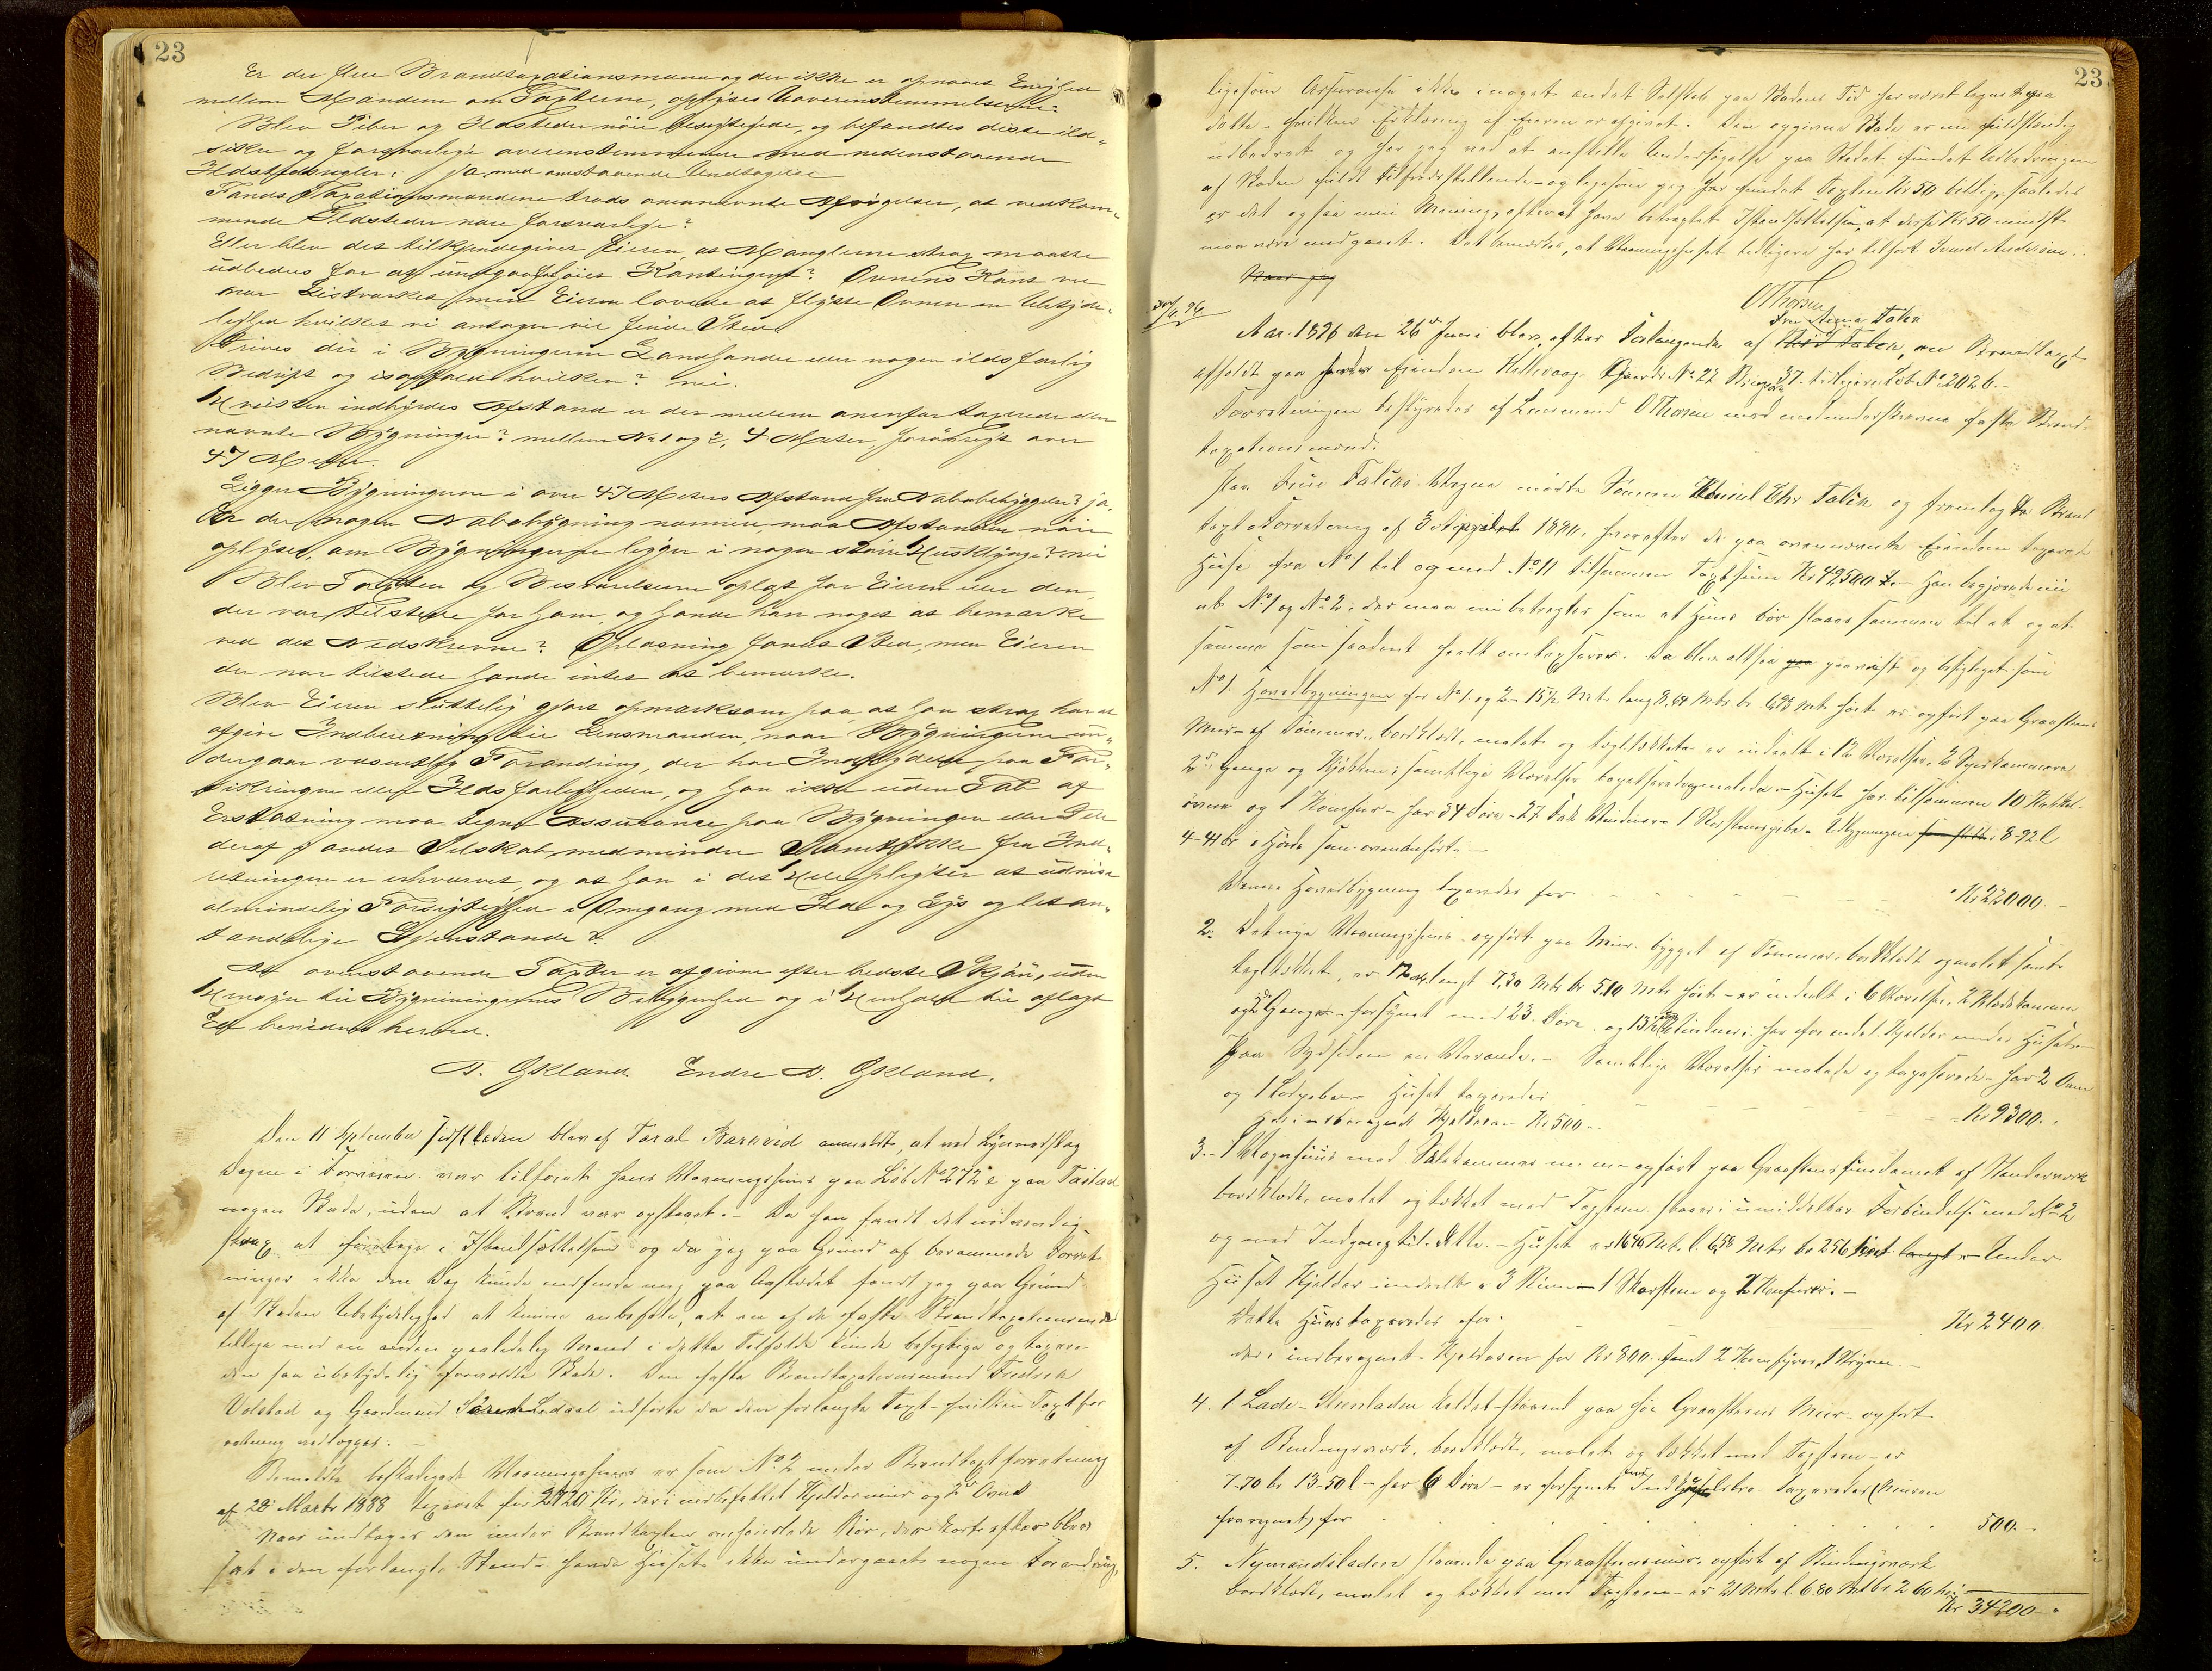 23
Er der flere Brandtaxationsmænd og der ikke er opnaaet Enighed
mellem Mændene om Taxterne, oplyses Uoverensstemmelserne.
Blev Piber og Ildsteder nöie besigtigede, og befandtes disse ild-
sikre og forsvarlige overensstemmende med nedenstaaende
Ildstedsregler: Ja med omstaaende Undtagelse
Fandt Taxationsmændene trods ovennævnte Afvigelser, at vedkom-
mende Ildsteder vare forsvarlige?
Eller blev det tilkjendegivet Eieren, at Manglerne strax maatte
udbedres for at undgaa forhöiet Kontingent? Ovnens Kant var
nær Listværket, men Eieren lovede at flytte Ovnen en Ubetyde-
lighed hvilket vi antager vil finde Sted.
Drives der i Bygningerne Landhandel eller nogen ildsfarlig
Bedrift og isaafald hvilken? nei.
Hvilken indbyrdes Afstand er der mellem ovenfor taxerede eller
nævnte Bygninger? mellem No 1 og 2, 4 Meter, forövrigt over
47 Meter.
Ligger Bygningerne i over 47 Meters Afstand fra Nabobebyggelse? ja.
Er der nogen Nabobygning nærmere, maa Afstanden nöie
oplyses, om Bygningerne ligger i nogen större Husklynge? nei
Blev Taxten og Besvarelserne oplæst for Eieren eller den,
der var tilstede for ham, og havde han noget at bemærke
ved det Nedskrevne? Oplæsning fandt Sted, men Eieren
der var tilstede havde intet at bemærke.
Blev Eieren sluttelig gjort opmærksom paa, at han strax har at
afgive Indberetning til Lensmanden, naar Bygningerne un-
dergaar væsentlig Forandring, der har Indflydelse paa For-
sikringen eller Ildsfarligheden, og han ikke uden Tab af
Erstatning maa tegne Assurance paa Bygningen eller Dele
deraf i andet Selskab, medmindre Samtykke fra Ind-
retningen er erhvervet, og at han i det Hele pligter at udvise
almindelig Forsigtighed i Omgang med Ild og Lys og letan-
tændelige Gjenstande?
At ovenstaaende Taxter er afgivne efter bedste Skjön, uden
Hensyn til Bygningernes Beliggenhed og i Henhold til aflagt
Ed bevidnes herved.
A. Økland. Endre A. Økland.
Den 11 September sidstleden blev af Taral Barkved anmeldt, at ved Lynnedslag
Dagen i Forveien var tilföiet hans Vaaningshuus paa Löb No 272 e paa Tastad
nogen Skade, uden at Brand var opstaaet. - Da han fandt det nödvendig
strax at foretage i Istandsættelsen og da jeg paa Grund af berammede Forret-
ninger ikke den Dag kunde indfinde mig paa Aastedet fandt jeg paa Grund
af Skadens Ubetydelighed at kunne anbefale, at en af de faste Brandtaxationsmænd
tillige med en anden paalidelig Mand i dette Tilfælde kunde besigtige og taxere
den saa ubetydelig forvoldte Skade. Den faste Brandtaxationsmand Fredrik
Vølstad og Gaardmand Sören Ledaal udförte da den forlangte Taxt - hvilken Taxtfor
retning vedlægges. -
Bemeldte beskadigede Vaaningshuus er som No 2 under Brandtaxtforretning
af 28 Marts 1888 taxeret for 2720 Kr, deri indbefattet Kjeldermuur og 2de Ovne
Naar undtages den under Brandtaxten anförte Rör, der kort efter blev
sat i den forlangte Stand - havde Huset ikke undergaaet nogen Forandring,
23
ligesom Assurance ikke i noget andet Selskab paa Skadens Tid har været tegnet paa
dette - hvilken Erklæring af Eieren er afgivet. Den opgivne Skade er nu fuldstændig
udbedret og har jeg ved at anstille Undersögelse paa Stedet fundet Udbedringen
af Skaden fuldt tilfredsstillende - og ligesom jeg har fundet Taxten Kr 50 billig, saaledes
er det ogsaa min Mening, efterat have betragtet Istandsættelsen, at disse Kr 50 mindst
maa være medgaaet. Det bemærkes, at Vaaningshuset tidligere har tilhört Svend Andersen.
OThorsen
30/6 96.
Aar 1896 den 26de Juni blev, efter Forlangende af Fru Falck, en Brandtaxt
afholdt paa Eiendom Hillevaag Gaards No 22 Brugs 37 tidligere Löb No 202 b.-
Forretningen bestyredes af Lensmand OThorsen med medunderskrevne faste Brand-
taxationsmænd.
Paa Frue Falcks Vegne mödte Sönnen Chr Falck og fremlagde Brand
taxtforretning af 3 1890, hvorefter de paa ovennævnte Eiendom taxerede
Huse fra No 1 til og med No 11 tilsammen Taxtsum Kr 49,500 - Han begjærede nu
at No 1 og No 2, der maa nu betragtes som et Huus bör slaaes sammen til et og at
samme som saadant heelt omtaxeres. Da blev altsaa paavist og besigtiget som
No 1 Hovedbygningen för No 1 og 2 - 15½ Mt. lang 8,64 Mtr br 6,93 Mtr höit er opfört paa Graasteens
Muur af Tömmer, bordklædt, malet og tegltækket er inddelt i 12 Værelser, 2 Spisekammere
2de Gange og Kjökken; samtlige Værelser tapetserede, malede - Huset har tilsammen 10 Kakkel
ovne og 1 Komfur - har 34 Döre - 27 Fag Vinduer - 1 Skorsteenspibe - Udbygningen 8-92 l
4-41 br i Höide som ovenanfört. -
Denne Hovedbygning taxeredes for Kr 22000. -
2. Det nye Vaaningshuus - opfört paa Muur bygget af Tömmer, bordklædt og malet samt
tegltækket, er 12 langt 7,30 Mtr br 5,10 Mtr höit - er inddelt i 6 Værelser, 2 Klædekammer
og 2 Gange - forsynet med 23 Döre og 13½ Fag Vinduer; har Kjelder under Huset -
Paa Sydsiden en Veranda. - Samtlige Værelser malede og tapetserede - har 2 Ovne
og 1 - Huset taxeredes Kr 9300. -
deri iberegnet Kjelderen Kr 500 -
3. - 1 Vognhuus med Saltkammer m.m - opfört paa Graasteensfundament af Stenderværk
bordklædt, malet og tækket med Tagsteen staaer i umiddelbar Forbindelse med No 2
og med Indgang til dette. - Huset er 16,46 Mt. l. 6,58 Mtr br 2,56 höit Under
Huset Kjelder inddelt i 3 Rum - 1 Skorsteen og 2 Komfurer. -
Dette Huus taxeredes for. Kr 2400.
deri iberegnet Kjelderen for Kr 800 samt 2 Komfurer 1 Bryggepan. -
4. 1 Lade - Steenladen kaldet staaende paa höi Graasteens Muur - opfört
af Bindingsværk, bordklædt, malet og tækket med Tagsteen - er
7-70 br 13-50 l - har 6 Döre - er forsynet med Indkjörselsbro Taxeredes (Muren
fraregnet) for 500. -
5. Nymandsladen staaende paa Graasteensmuur opfört af Bindingsværk
bordklædt, malet og tækket med Tagsteen - er 21 Mtr. l. 6.80 Mtr br 2 60 höi
Kr 34200 -